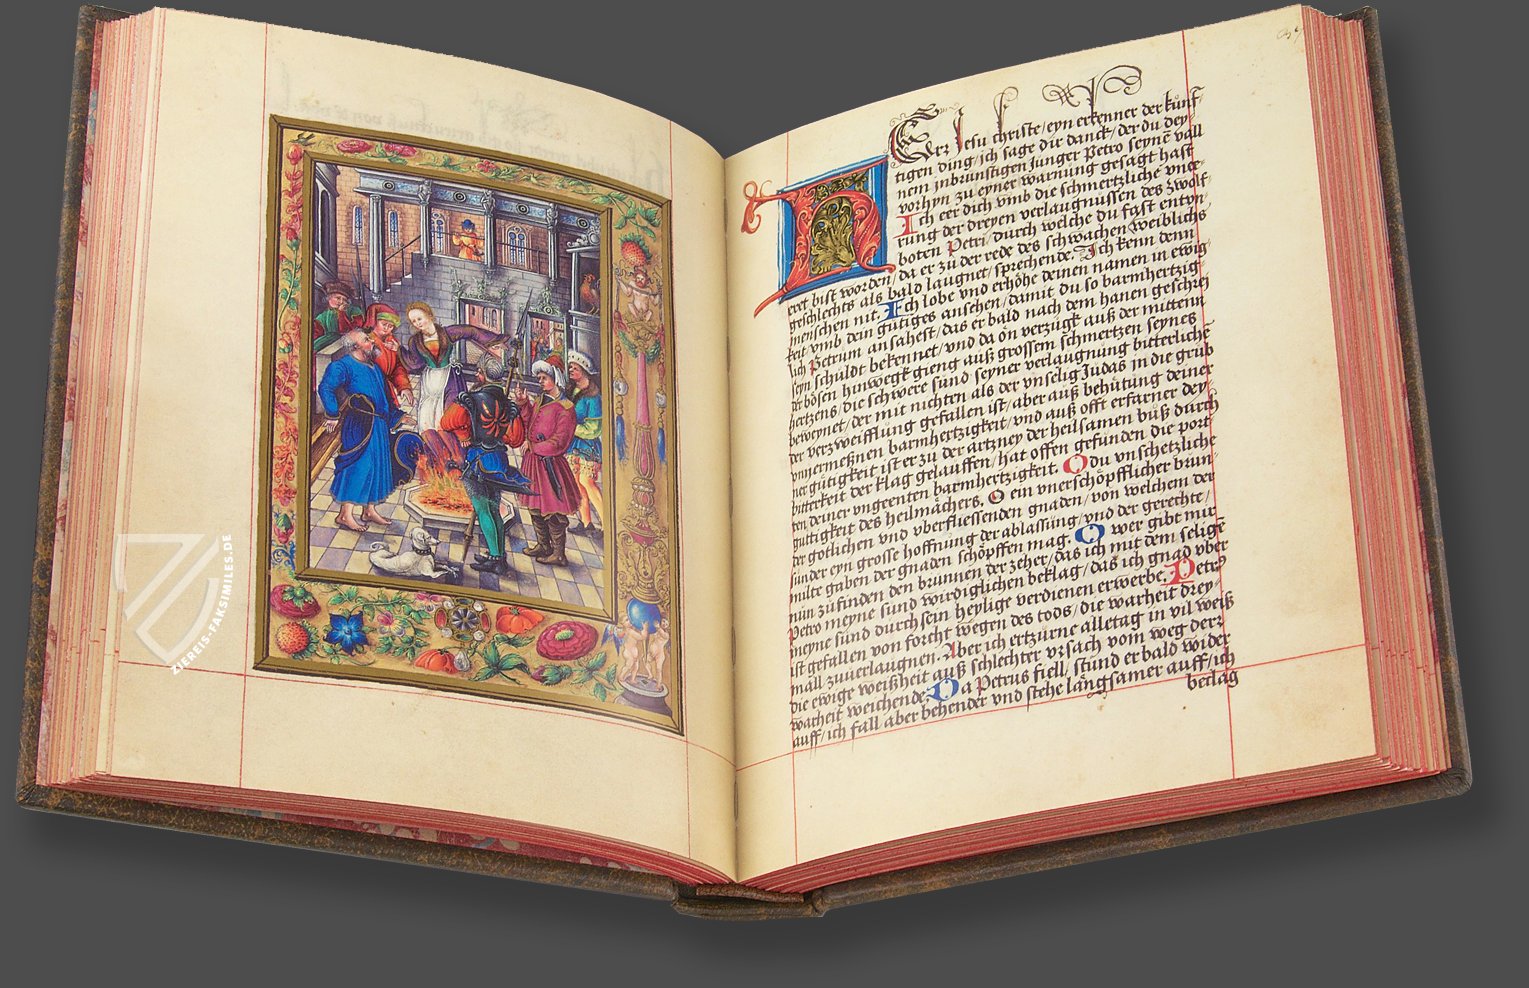 ZIEREIS-FAKSIMILES.DE
Herr Jesu christe/eyn erkenner der künf-
tigen ding/ich sage dir danck/der du dey
nem inbrunstigen Junger Petro seynē vall
vorhyn zu eyner warnung gesagt hast
Ich eer dich vmb die schmertzliche vnee-
rung der dreyen verlaugnussen des zwölf-
boten Petri/durch welche du fast entvn-
eret bist worden/da er zu der rede des schwachen weiblichs
geschlechts als bald laugnet/sprechende. Ich kenn denn
menschen nit. Ich lobe vnd erhöhe deinen namen in ewig-
keit/vmb dein gütiges ansehen/damit du so barmhertzig
lich Petrum ansahest/das er bald nach dem hanen geschrey
seyn schuldt bekennet/vnd da on verzügk auß der mittenn
der bösen hinwegk gieng auß grossem schmertzen seynes
hertzens/die schwere sund seyner verlaugnung bitterliche
beweynet/der mit nichten als der vnselig Judas in die grub
der verzweifflung gefallen ist/aber auß behütung deiner
vnnermeßnen barmhertzigkeit/vnd auß offt erfarner dey-
ner gütigkeit ist er zu der artzney der heilsamen buß durch
bitterkeit der klag gelauffen/hat offen gefunden die port
ten deiner vngeenten barmhertzigkeit. O du vnschetzliche
guttigkeit des heilmachers. O ein vnerschöpfflicher brun-
der gotlichen vnd vberfliessenden gnaden/von welchem der
sunder eyn grosse hoffnung der ablassung/vnd der gerechte/
milte gaben der gnaden schöpffen mag. O wer gibt mir
nun zufinden den brunnen der zeher/das ich mit dem seligē
Petro meyne sund wirdiglichen beklag/das ich gnad vber
meyne sund durch sein heylige verdienen erwerbe. Petrus
ist gefallen von forcht wegen des tods/die warheit drey
mall zuuerlaugnen. Aber ich ertzürne alletag in vil weiß
die ewige weißheit auß schlechter vrsach vom weg derr
warheit weichende. Da Petrus fiell/stund er bald wider
auff/ich fall aber behender vnd stehe langsamer auff/ich
beklag